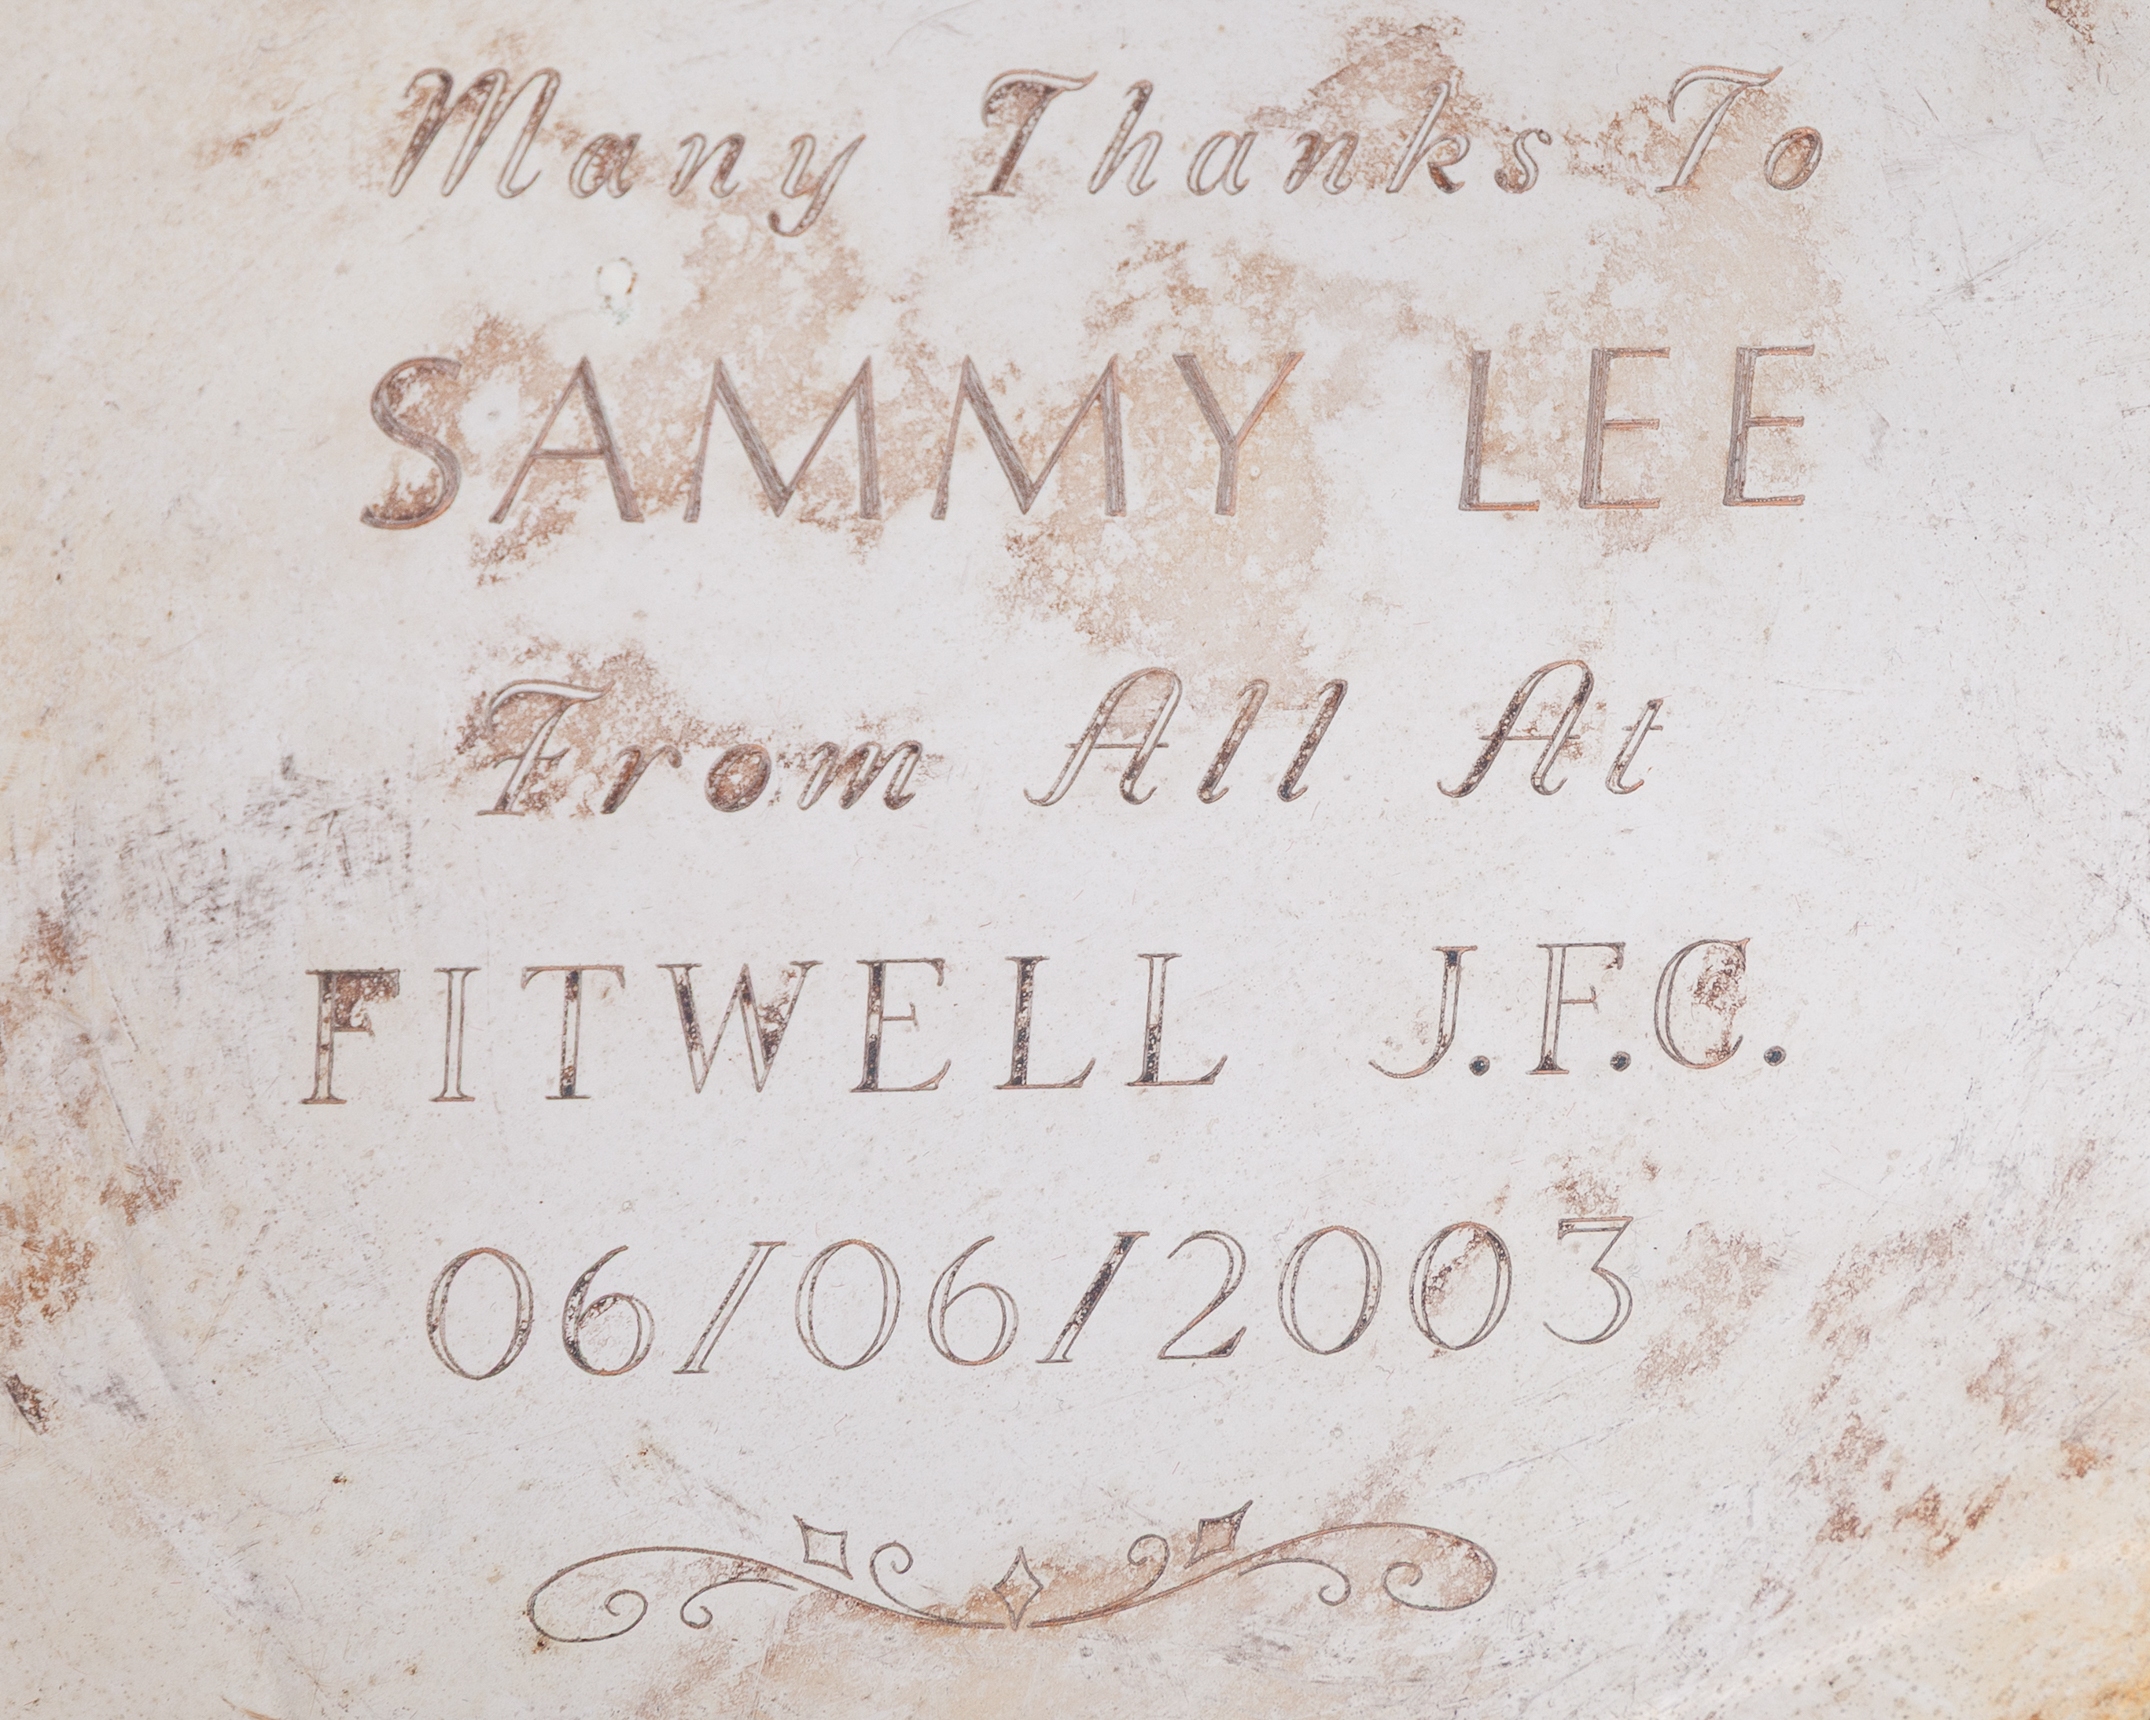 Many Thanks To
SAMMY LEE
From All At
FITWELL J.F.C.
06/06/2003